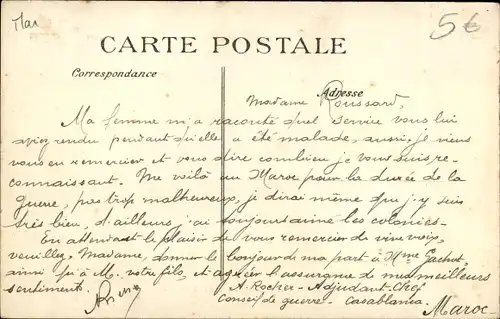 Mar
5€
CARTE POSTALE
Correspondance
Adresse
Madame Roussard,
Ma femme m'a raconté quel service vous lui
aviez rendu pendant qu'elle a été malade, aussi, je viens
vous en remercier et vous dire combien je vous suis re-
connaissant. Me voilà au Maroc pour la durée de la
guerre, pas trop malheureux, je dirai même que j'y suis
très bien, d'ailleurs, j'ai toujours aimé les colonies.
En attendant le plaisir de vous remercier de vive voix,
veuillez, Madame, donner le bonjour de ma part à Mme Gachet,
ainsi qu'à M. votre fils, et agréer l'assurance de mes meilleurs
sentiments.
A. Rocher - Adjudant-Chef
Conseil de guerre - Casablanca.
Maroc